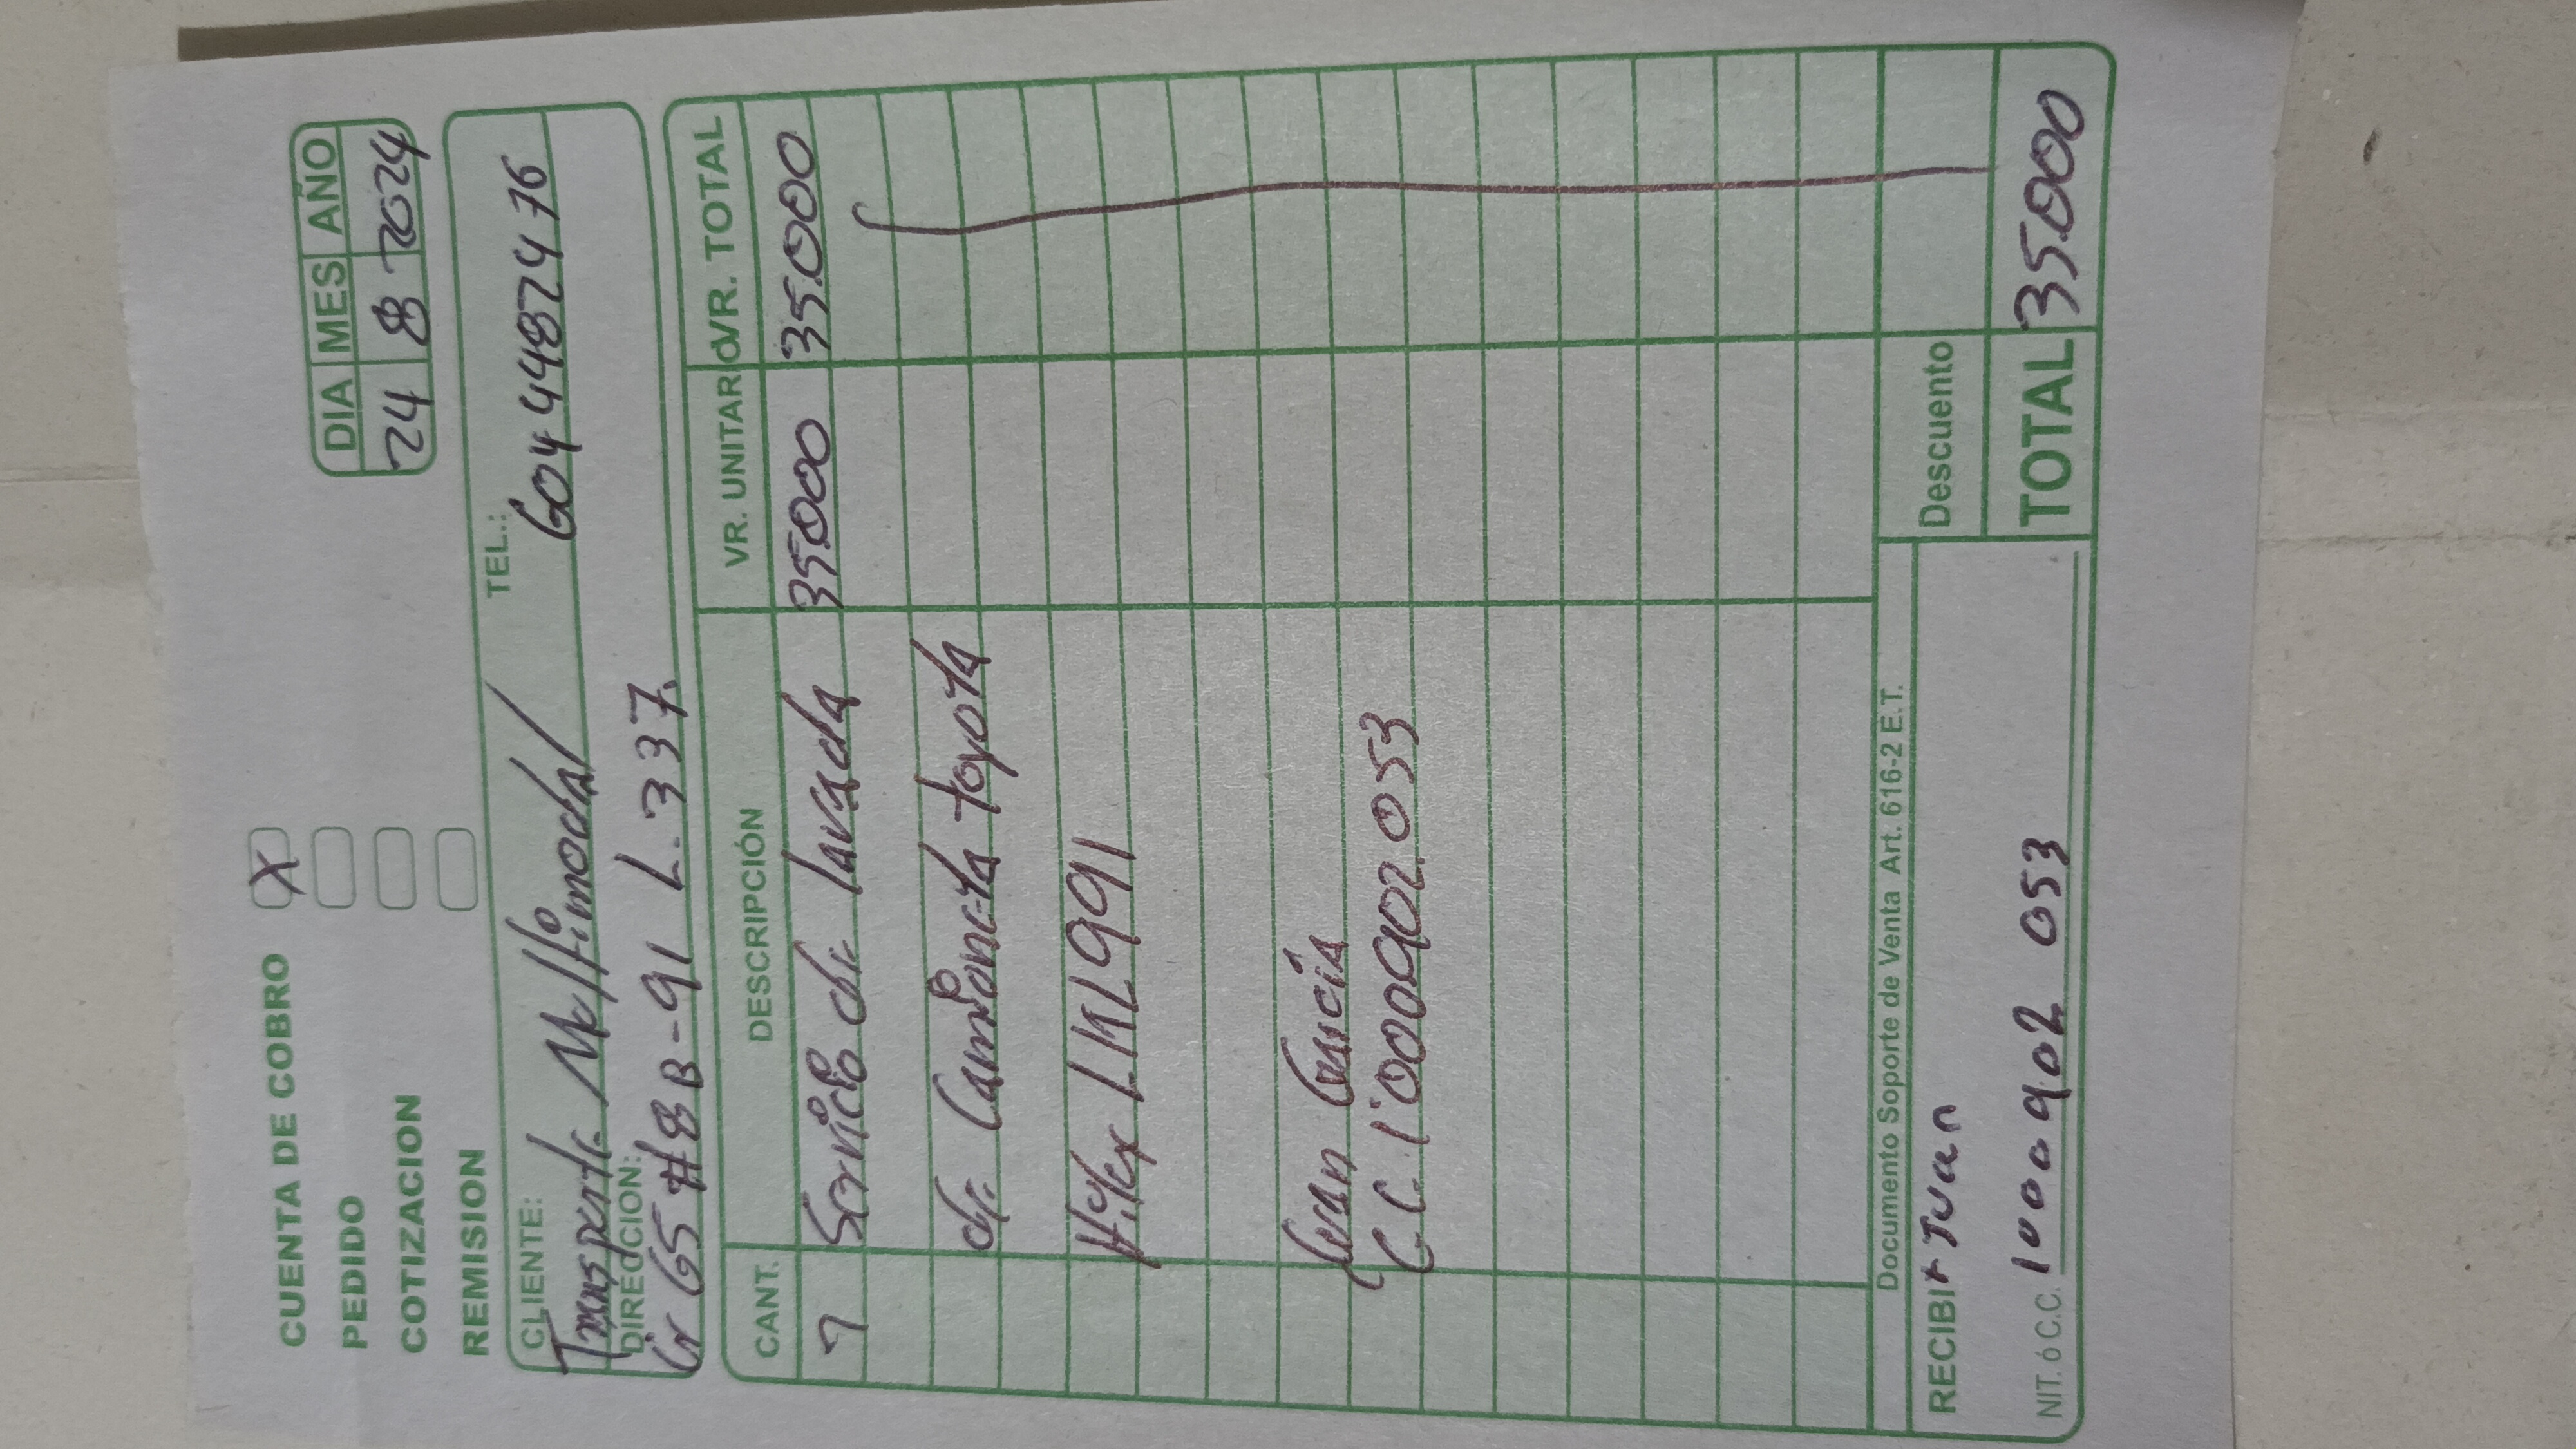 CUENTA DE COBRO X
PEDIDO
COTIZACION
REMISION
DIA MES AÑO
24 8 2024
CLIENTE: TEL.:
Transporte Multimodal 604 4482476
DIRECCION:
Cr 65 #8B-91 L.337.
CANT. DESCRIPCIÓN VR. UNITARIO VR. TOTAL
1 Servicio de lavada 35.000 35.000
de Camioneta toyota
Hilux LKL991
Juan García
C.C. 1'000.902.053
Documento Soporte de Venta Art. 616-2 E.T.
RECIBI Juan
Descuento
NIT. ó C.C. 1000 902 053
TOTAL 35.000